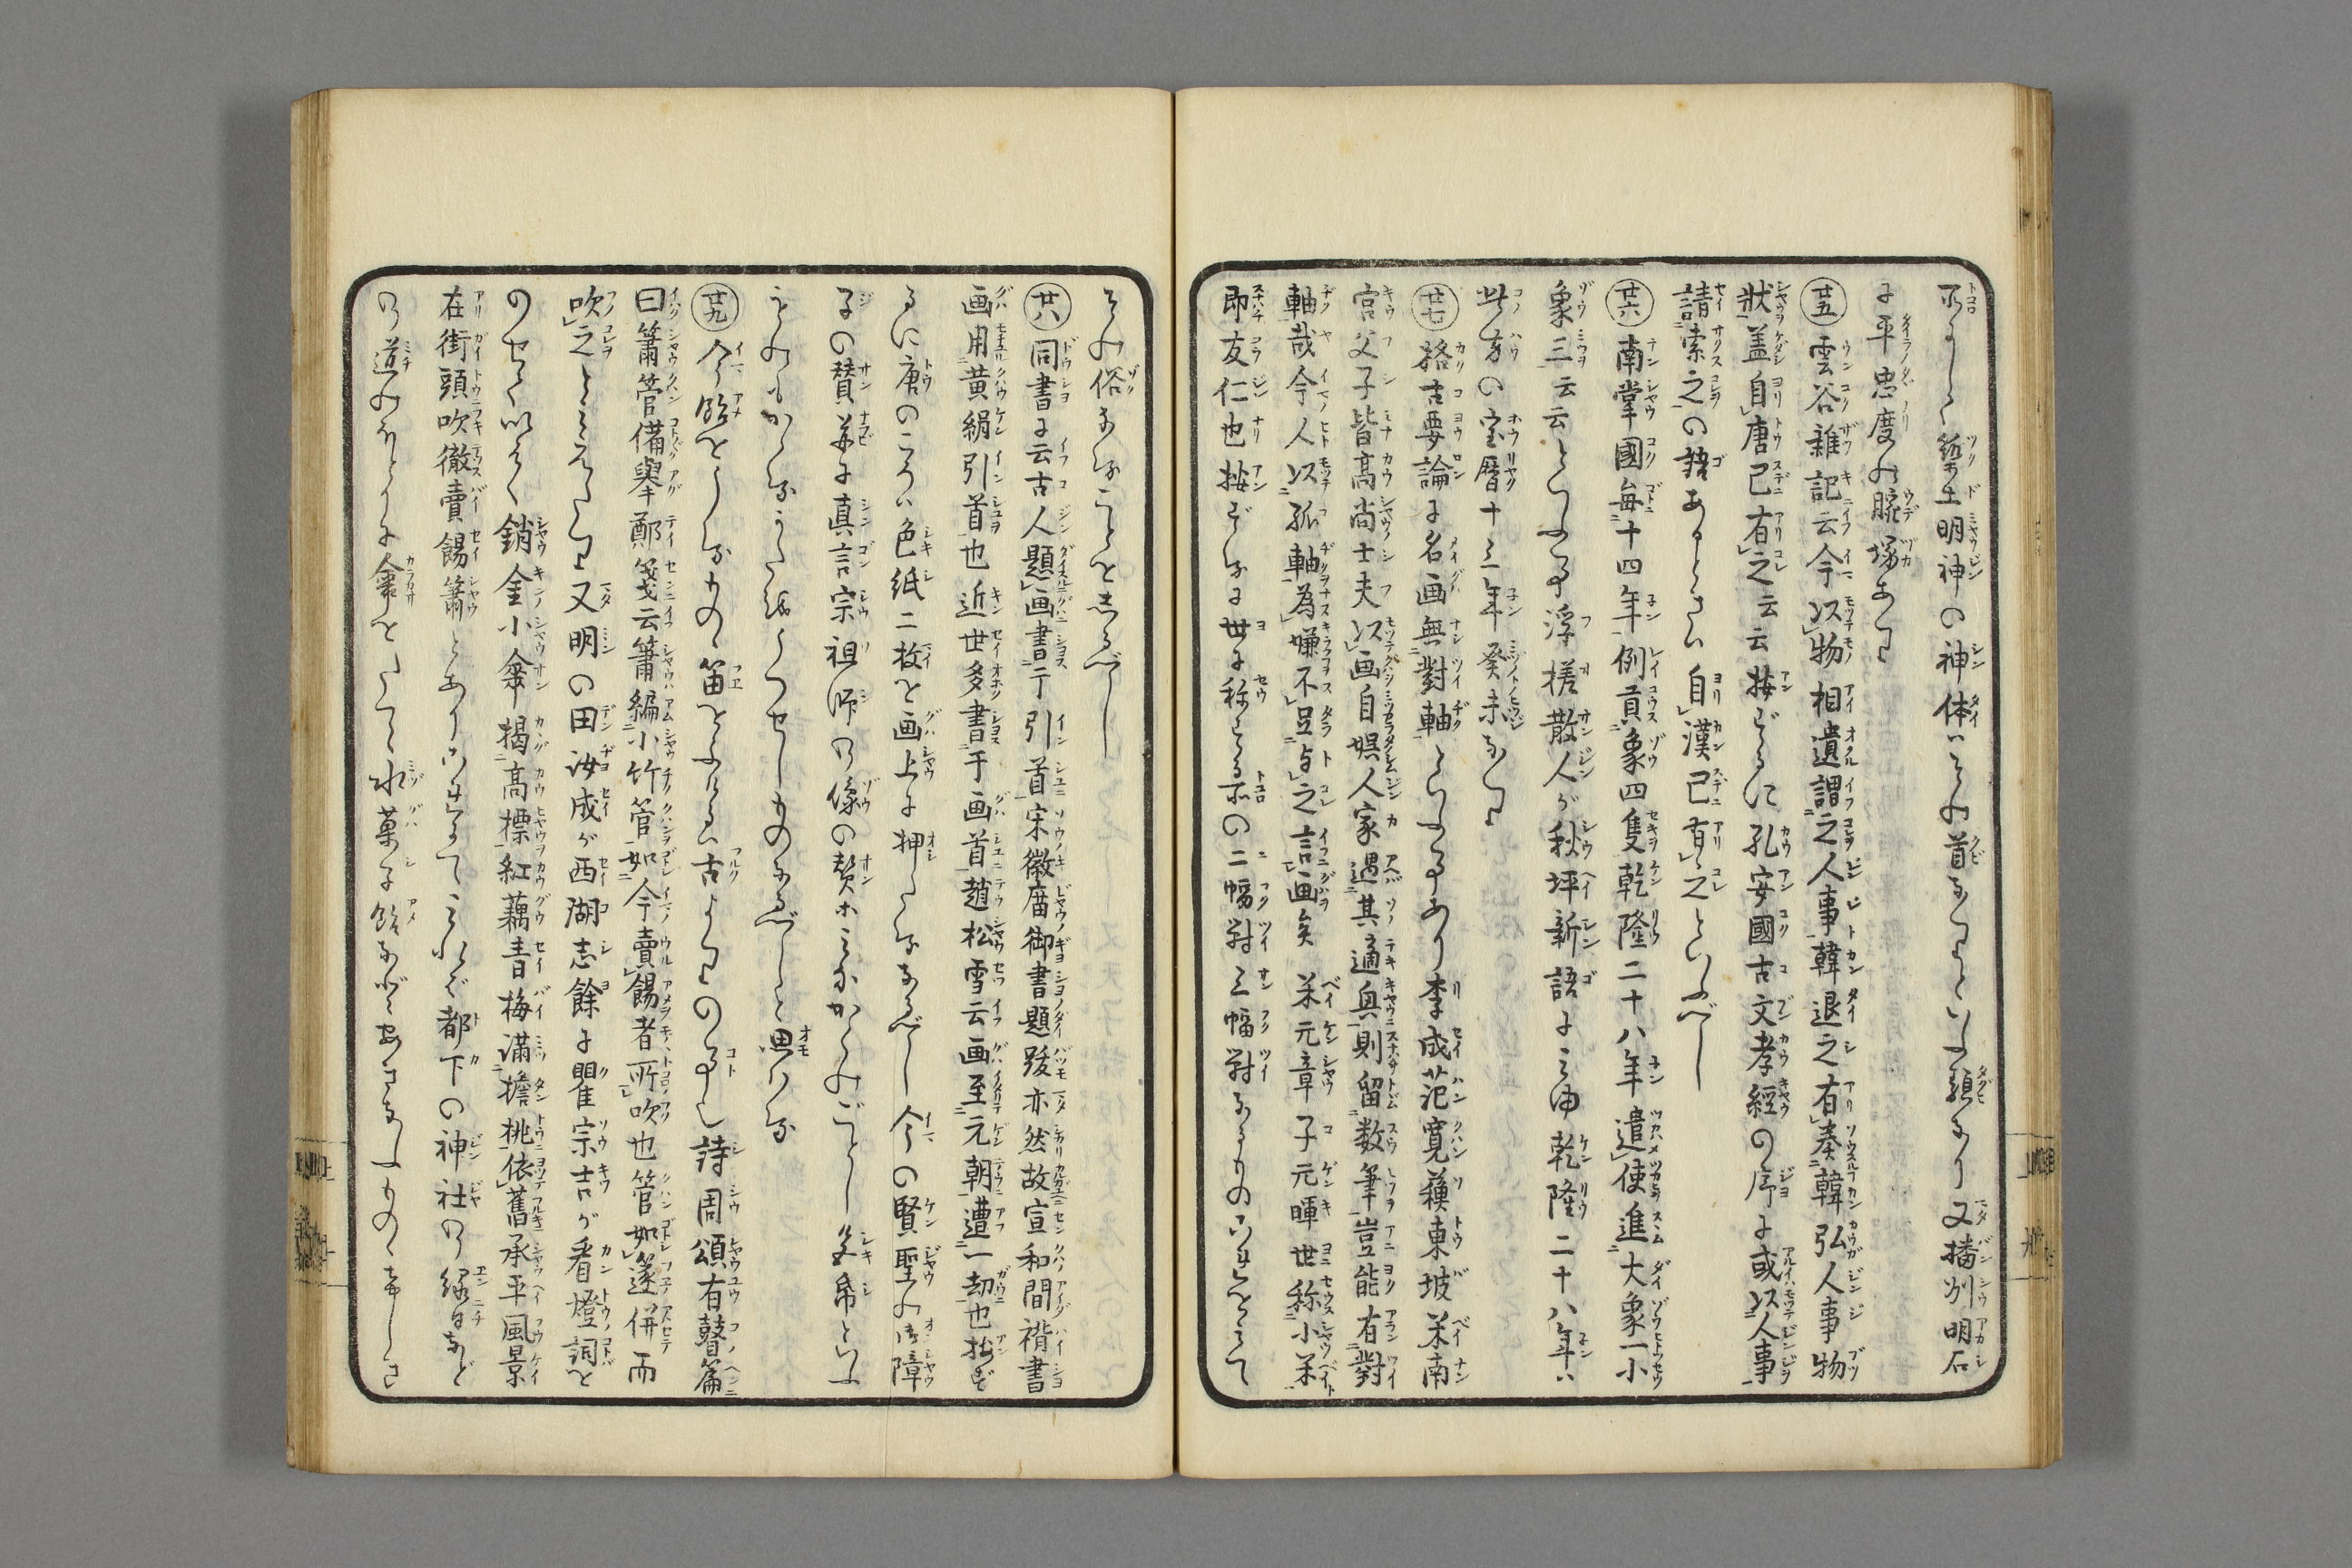 所にしく築土明神の神体はその首なりといふ類あり又播州明石
に平忠度の腕塚あり
廿五 雲谷雜記云今以物相遺謂之人事韓退之有奏韓弘人事物
狀盖自唐已有之云云按ずるに孔安國古文孝經の序に或以人事
請索之の語あるときは自漢已有之といふべし
廿六 南掌國毎十四年例貢象四隻乾隆二十八年遣使進大象一小
象三云云といふ事浮槎散人が秋坪新語にみゆ乾隆二十八年は
此方の宝暦十三年癸未なり
廿七 格古要論に名画無對軸といふ事あり李成范寛蘓東坡米南
宮父子皆高尚士夫以画自娯人家遇其適興則留数筆豈能有對
軸哉今人以孤軸為嫌不足与之言画矣 米元章子元暉世称小米
即友仁也按ずるに世に称する所の二幅對三幅對なるものこれをみて
その俗なることをしるべし
廿八 同書に云古人題画書于引首宋徽庿御書題跋亦然故宣和間褙書
画用黄絹引首也近世多書于画首趙松雪云画至元朝遭一劫也按ず
るに唐のころは色紙二枚を画上に押たるなるべし今の賢聖の御障
子の賛并に真言宗祖師の像の賛ホみなかくのごとし色帋といふ
ものもかくるうた

廿九 今飴をうるもの笛をふけるは古よりの事也詩周頌有瞽篇
曰簫管備擧鄭箋云簫編小竹管如今賣餳者所吹也管如篴併而
吹之とみえたり又明の田汝成が西湖志餘に瞿宗吉が看燈詞を
のせていはく銷金小傘揭高標紅藕青梅滿擔桃依舊承平風景
在街頭吹徹賣餳簫とありこれによてみれば都下の神社の縁日など
の道のほとりに傘をたて水菓子飴など